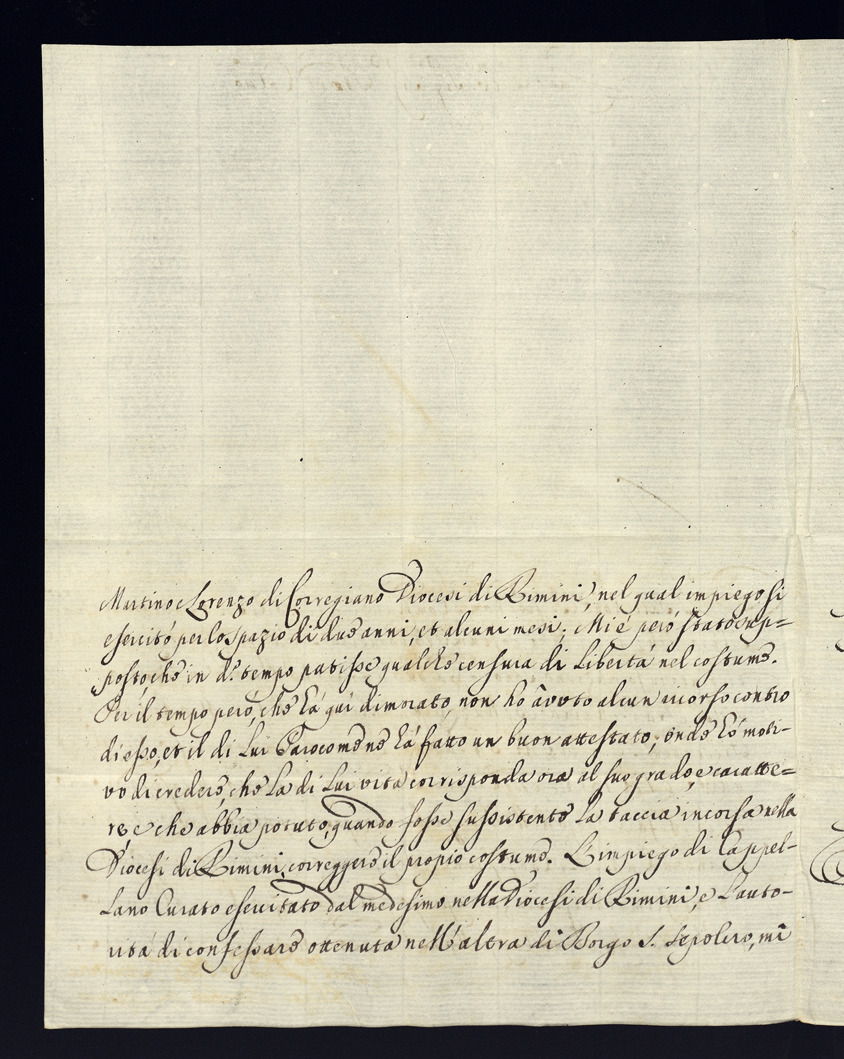 Martino e Lorenzo di Corregiano Diocesi di Rimini, nel qual impiego si
esercitó per lo spazio di due anni, et alcuni mesi. Mi é peró stato sup=
posto, che in d.º tempo patisse qualche censura di Libertá nel costume.
Per il tempo peró, che há quí dimorato, non ho âvuto alcun ricorso contro
di esso, et il di Lui Paroco me ne há fatto un buon attestato; onde hó moti-
vo di credere, che La di Lui vita corrisponda ora al suo grado, e caratte=
re, e che abbia potuto, quando fosse sussistente La taccia incorsa nella
Diocesi di Rimini, correggere il propio costume. L'impiego di Cappel-
lano Curato esercitato dal medesimo nella Diocesi di Rimini, e L'auto-
ritá di confessare ottenuta nell'altra di Borgo S. Sepolcro, mi